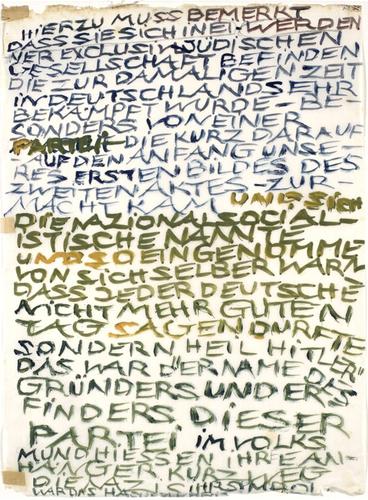 HIERZU MUSS BEMERKT
DASS SIE SICH IN EI- WERDEN
NER EXCLUSIV JÜDISCHEN
GESELLSCHAFT BEFINDEN
DIE ZUR DAMALIGEN ZEIT
IN DEUTSCHLAND SEHR
BEKÄMPFT WURDE - BE-
SONDERS VON EINER
PARTEI - DIE KURZ DARAUF
AUF DEN ANFANG UNSE-
RES ERSTEN BILDES DES
ZWEITEN AKTES - ZUR
MACHT KAM UND SICH
DIE NAZIONALSOCIAL-
ISTISCHE NANNTE
UND SO EINGENOMME
VON SICH SELBER WARN
DASS JEDER DEUTSCHE
NICHT MEHR GUTEN
TAG SAGEN DURFTE
SONDERN HEIL HITLER"
DAS WAR DER NAME DES
GRÜNDERS UND ER-
FINDERS DIESER
PARTEI IM VOLKS
MUND HIESSEN IHRE AN-
HÄNGER KURZWEG
DIE NAZIS IHR SYMBOL
WAR DAS